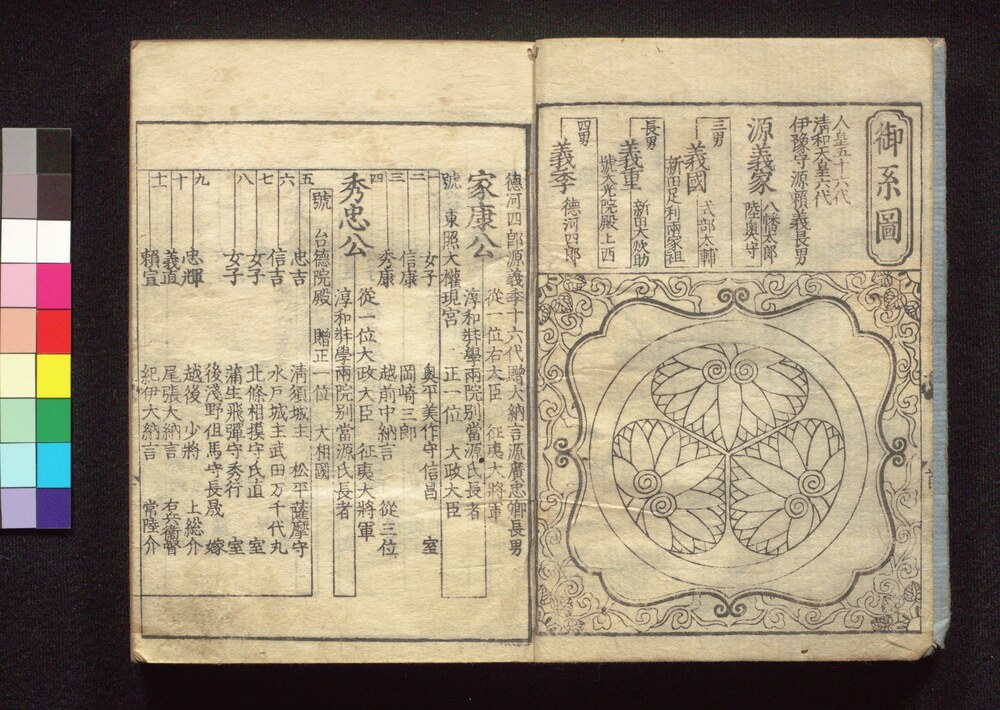 御系圖
人皇五十六代
清和天皇六代
伊豫守源賴義長男
源義家
八幡太郎
陸奥守
三男
義國
式部太輔
新田足利兩家祖
長男
義重
新田大炊助
號大光院殿上西
四男
義季
德河四郎
德河四郎源義季十六代贈大納言源廣忠卿長男
家康公
從一位右大臣 征夷大將軍
淳和弉學兩院別當源氏長者
號 東照大權現宮 正一位 大政大臣
一 女子 奥平美作守信昌 室
二 信康 岡崎三郎
三 秀康 越前中納言 從三位
四 秀忠公
從一位大政大臣 征夷大將軍
淳和弉學兩院別當源氏長者
號 台德院殿 贈正一位 大相國
五 忠吉 清須城主 松平薩摩守
六 信吉 水戸城主武田万千代丸
七 女子 北條相摸守氏直 室
八 女子 蒲生飛彈守秀行 室
後淺野但馬守長晟 嫁
九 忠輝 越後少將 上総介
十 義直 尾張大納言 右兵衞督
十一 賴宣 紀伊大納言 常陸介